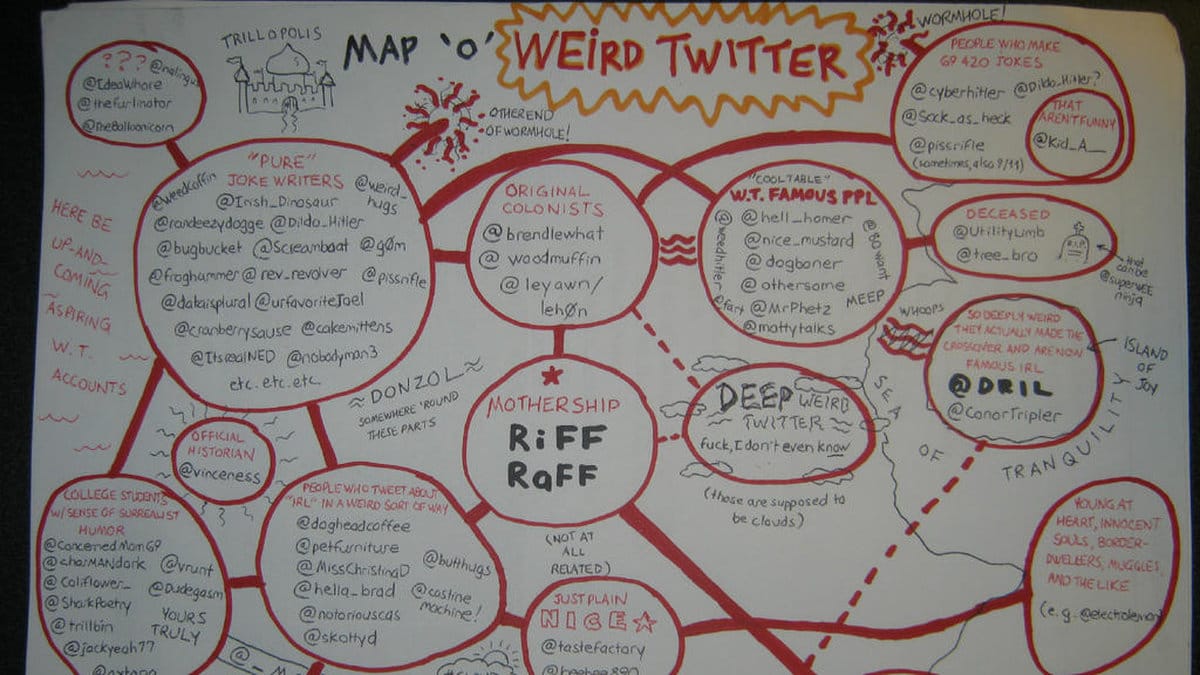 MAP 'O' WEIRD TWITTER
TRILLOPOLIS
WORMHOLE!
OTHER END
OF WORMHOLE!
???
@IdeaWhore
@thefurlinator
@TheBalloonicorn
PEOPLE WHO MAKE
GP 420 JOKES
@cyberhitler @Dildo_Hitler?
@Sock_as_heck
@pissrifle
(sometimes, also 9/11)
THAT
AREN'T FUNNY
@Kid_A__
"PURE"
JOKE WRITERS
@weedcoffin
@weird_
hugs
@Irish_Dinosaur
@randeezydogge @Dildo_Hitler
@bugbucket @Screamboat @g0m
@froghammer @rev_revolver @pissrifle
@dakaisplural @urfavoriteJoel
@cranberrysause @cakemittens
@ItsrealNED @nobodyman3
etc. etc. etc.
ORIGINAL
COLONISTS
@brendlewhat
@woodmuffin
@leyawn/
leh0n
"COOL TABLE"
W.T. FAMOUS PPL
@weedhitler
@fart
@hell_homer
@nice_mustard
@dogboner
@othersome
@MrPhetz
@mattytalks
@80want
MEEP
DECEASED
@UtilityLimb
@tree_bro
R.I.P.
that
can be
@superWEE
ninja
HERE BE
UP-AND-
COMING
ASPIRING
W.T.
ACCOUNTS
WHOOPS
SO DEEPLY WEIRD
THEY ACTUALLY MADE THE
CROSSOVER AND ARE NOW
FAMOUS IRL
@DRIL
@ConorTripler
ISLAND
OF
JOY
SEA OF TRANQUILITY
≈ DONZOL ≈
SOMEWHERE 'ROUND
THESE PARTS
MOTHERSHIP
RiFF
RaFF
DEEP WEIRD
TWITTER
fuck, I don't even know
(those are supposed to
be clouds)
OFFICIAL
HISTORIAN
@vinceness
COLLEGE STUDENTS
W/ SENSE OF SURREALIST
HUMOR
@ConcernedMom69
@charMANdork @vrunt
@Coliflower_ @Dudegasm
@SharkPoetry
@trillbin
YOURS
TRULY
@jackyeah77
PEOPLE WHO TWEET ABOUT
"IRL" IN A WEIRD SORT OF WAY
@dogheadcoffee
@petfurniture
@butthugs
@MissChristinaD
@hella_brad
@castine
machine!
@notoriouscas
@skottyd
(NOT AT
ALL
RELATED)
JUST PLAIN
NICE
@tastefactory
YOUNG AT
HEART, INNOCENT
SOULS, BORDER-
DWELLERS, MUGGLES,
AND THE LIKE
(e.g. @electrolemon)